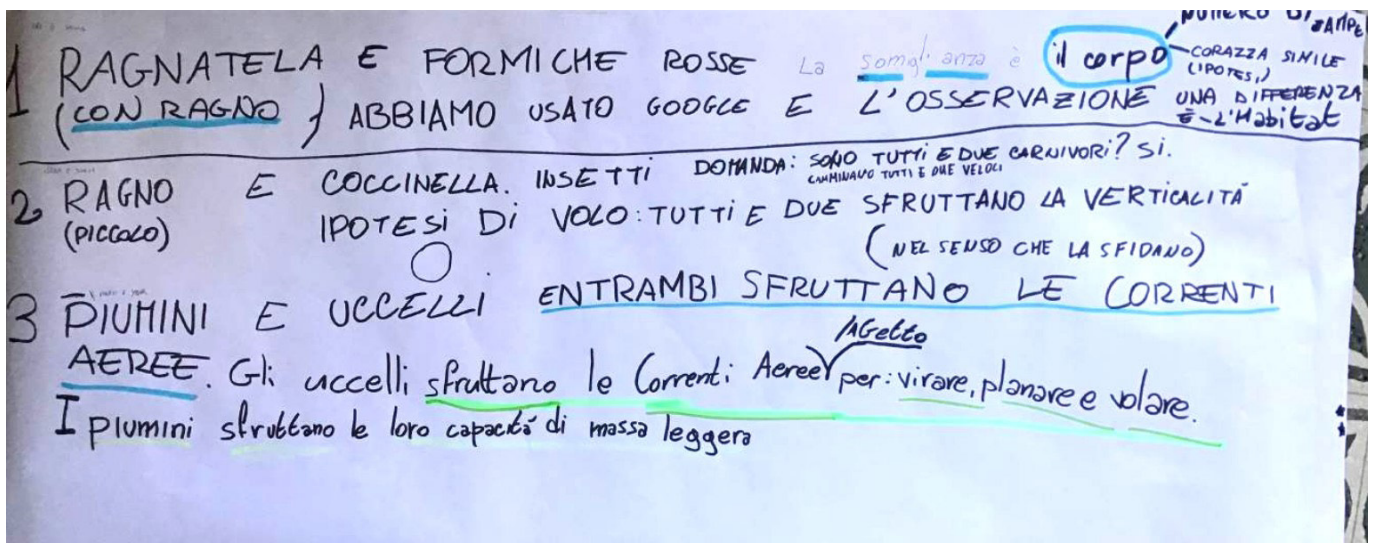 NUMERO DI ZAMPE
1 RAGNATELA E FORMICHE ROSSE La somiglianza è il corpo CORAZZA SIMILE (IPOTESI)
(CON RAGNO) ABBIAMO USATO GOOGLE E L'OSSERVAZIONE UNA DIFFERENZA È - L'Habitat
2 RAGNO E COCCINELLA. INSETTI DOMANDA: SONO TUTTI E DUE CARNIVORI? Si.
CAMMINAVO TUTTI E DUE VELOCI
(PICCOLO) IPOTESI Di VOLO: TUTTI E DUE SFRUTTANO LA VERTICALITÁ
(NEL SENSO CHE LA SFIDANO)
3 PIUMINI E UCCELLI ENTRAMBI SFRUTTANO LE CORRENTI
AEREE. Gli uccelli sfruttano le Correnti Aeree AGetto per: virare, planare e volare.
I piumini sfruttano le loro capacitá di massa leggera